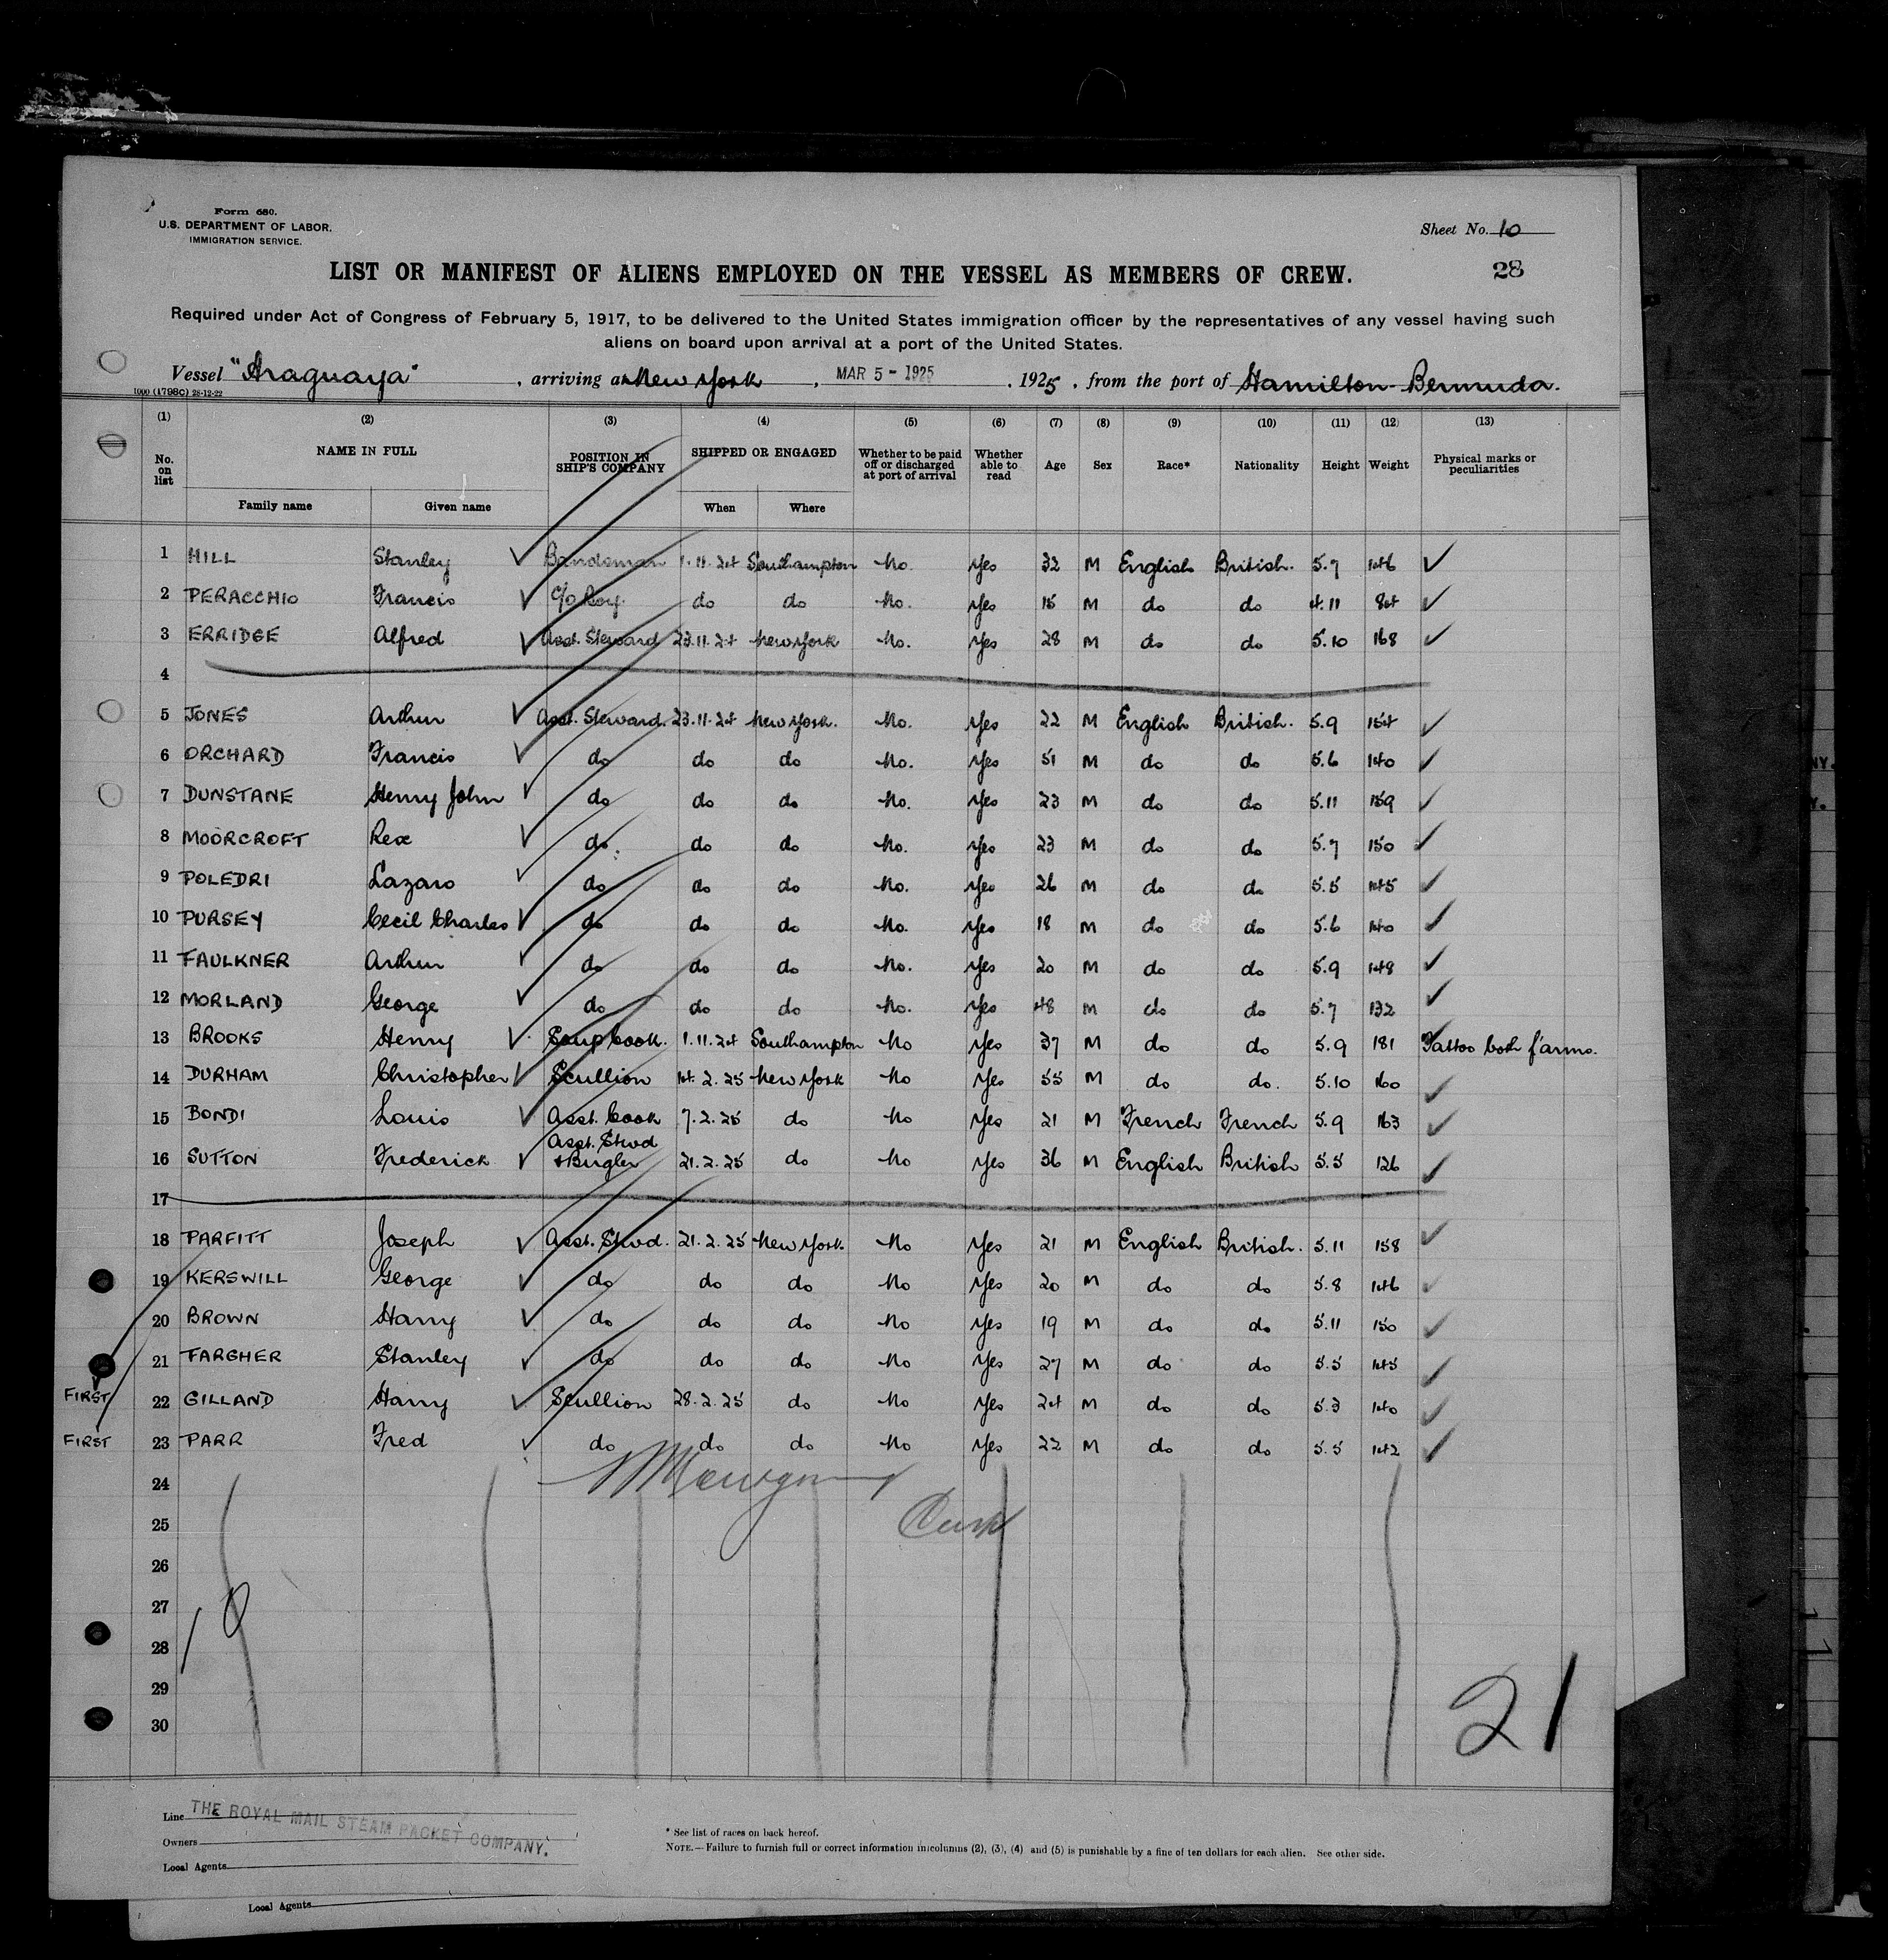 Form 680.
U.S. DEPARTMENT OF LABOR.
IMMIGRATION SERVICE.
Sheet No. 10
LIST OR MANIFEST OF ALIENS EMPLOYED ON THE VESSEL AS MEMBERS OF CREW.
28
Required under Act of Congress of February 5, 1917, to be delivered to the United States immigration officer by the representatives of any vessel having such
aliens on board upon arrival at a port of the United States.
Vessel "Araguaya", arriving at New York, MAR 5 - 1925, 1925, from the port of Hamilton-Bermuda.
1000 (1798C) 28-12-22
(1) (2) (3) (4) (5) (6) (7) (8) (9) (10) (11) (12) (13)
No. on list NAME IN FULL POSITION IN SHIP'S COMPANY SHIPPED OR ENGAGED Whether to be paid off or discharged at port of arrival Whether able to read Age Sex Race* Nationality Height Weight Physical marks or peculiarities
Family name Given name When Where
1 HILL Stanley Bandsman 1.11.24 Southampton No. Yes 32 M English British. 5.7 146
2 PERACCHIO Francis do do No. Yes 15 M do do 4.11 84
3 ERRIDGE Alfred Asst. Steward 23.11.24 New York No. Yes 28 M do do 5.10 168
4
5 JONES Arthur Asst. Steward. 23.11.24 New York. No. Yes 22 M English British. 5.9 154
6 ORCHARD Francis do do do No. Yes 51 M do do 5.6 140
7 DUNSTANE Henry John do do do No. Yes 23 M do do 5.11 159
8 MOORCROFT Rex do do do No. Yes 23 M do do 5.7 150
9 POLEDRI Lazaro do do do No. Yes 26 M do do 5.5 145
10 PURSEY Cecil Charles do do do No. Yes 18 M do do 5.6 140
11 FAULKNER Arthur do do do No. Yes 20 M do do 5.9 148
12 MORLAND George do do do No. Yes 48 M do do 5.7 132
13 BROOKS Henry Soup Cook. 1.11.24 Southampton No Yes 37 M do do 5.9 181 Tattoo both f'arms.
14 DURHAM Christopher Scullion 14.2.25 New York No Yes 55 M do do. 5.10 160
15 BONDI Louis Asst. Cook 7.2.25 do No Yes 21 M French French 5.9 163
16 SUTTON Frederick Asst. Stwd + Bugler 21.2.25 do No Yes 36 M English British 5.5 126
17
18 PARFITT Joseph Asst. Stwd. 21.2.25 New York. No Yes 21 M English British. 5.11 158
19 KERSWILL George do do do No Yes 20 M do do 5.8 146
20 BROWN Harry do do do No Yes 19 M do do 5.11 150
21 FARGHER Stanley do do do No Yes 27 M do do 5.5 145
FIRST 22 GILLAND Harry Scullion 28.2.25 do No Yes 24 M do do 5.3 140
FIRST 23 PARR Fred do do do No Yes 22 M do do 5.5 142
24
25
26
27
28
29
30
10
21
Line THE ROYAL MAIL STEAM PACKET COMPANY.
Owners
Local Agents
* See list of races on back hereof.
NOTE.—Failure to furnish full or correct information in columns (2), (3), (4) and (5) is punishable by a fine of ten dollars for each alien. See other side.
Local Agents